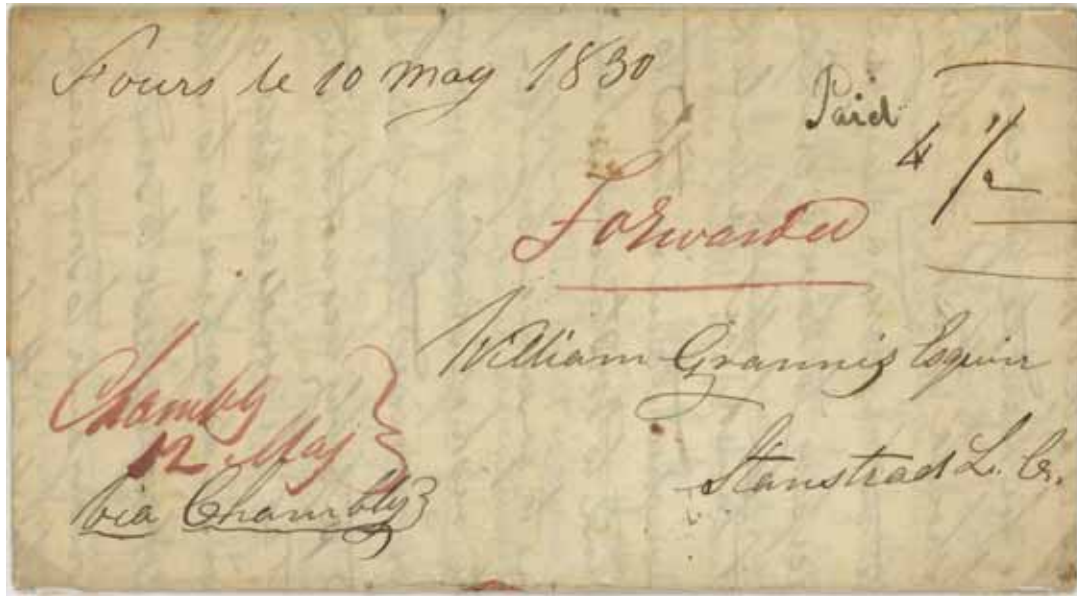 Fours le 10 may 1830
Paid 4 1/2
Forwarded
William Grannis Esquire
Stanstead L. C.
Chambly
12 May
Via Chambly